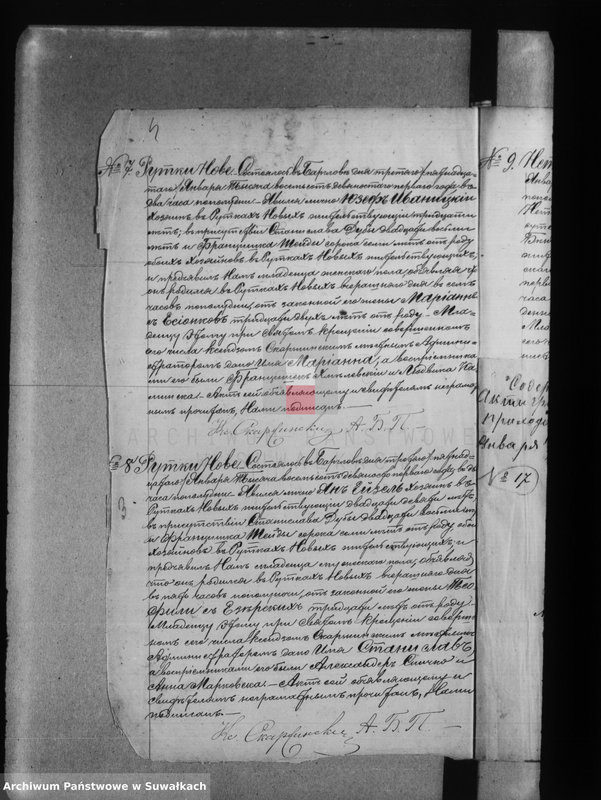 4
№ 7 Рутки Нове. Состоялось въ Барглове дня третьяго/пятнадца-
таго/ Января тысяча восемьсотъ девяностаго перваго года въ
два часа пополудни. Явился лично Юзефъ Иваницкій
хозяинъ въ Руткахъ Новыхъ жительствующій тридцати
лѣтъ, въ присутствіи Станислава Дубы двадцати восьми
лѣтъ и Францишка сорока семи лѣтъ отъ роду
обоихъ хозяйновъ въ Руткахъ Новыхъ жительствующихъ,
и предъявилъ Намъ младенца женскаго пола, объявляя что
онъ родился въ Руткахъ Новыхъ вчерашняго дня въ семь
часовъ пополудни, отъ законной его жены Маріанны
съ Есіонковъ тридцати двухъ лѣтъ отъ роду. Мла-
денцу этому при Святомъ Крещеніи совершенномъ
сего числа Ксендзомъ Скаржинскимъ мѣстнымъ Админи-
страторомъ дано имя Маріанна, а воспріемника-
ми его были Францишекъ и Ядвига
Актъ сей объявляющему и свидѣтелямъ неграмот-
нымъ прочитанъ, Нами подписанъ.
Кс. Скаржинскій А. Б. П.
№ 8 Рутки Нове. Состоялось въ Барглове дня третьяго/пятнад-
цатаго/ Января тысяча восемьсотъ девяностаго перваго года, въ два
часа пополудни. Явился лично Янъ Ейзель хозяинъ въ
Руткахъ Новыхъ жительствующій двадцати девяти лѣтъ,
въ присутствіи Станислава Дубы двадцати восьми лѣтъ
и Францишка сорока семи лѣтъ отъ роду, обоихъ
хозяйновъ въ Руткахъ Новыхъ жительствующихъ, и
предъявилъ Намъ младенца мужескаго пола, объявляя
что онъ родился въ Руткахъ Новыхъ вчерашняго дня
въ пять часовъ пополуночи, отъ законной его жены Тео-
фили съ Ежрскихъ тридцати лѣтъ отъ роду.
Младенцу этому при Святомъ Крещеніи совершен-
номъ сего числа Ксендзомъ Скаржинскимъ мѣстнымъ
Администраторомъ дано имя Станиславъ,
а воспріемниками его были Александеръ и
Анна Марковска. Актъ сей объявляющему и
свидѣтелямъ неграмотнымъ прочитанъ, Нами
подписанъ.
Кс. Скаржинскій А. Б. П.
3
№ 9.
Января
часа
Содер
Акты
Января
№ 17
ARCHIWUM PAŃSTWOWE
Archiwum Państwowe w Suwałkach